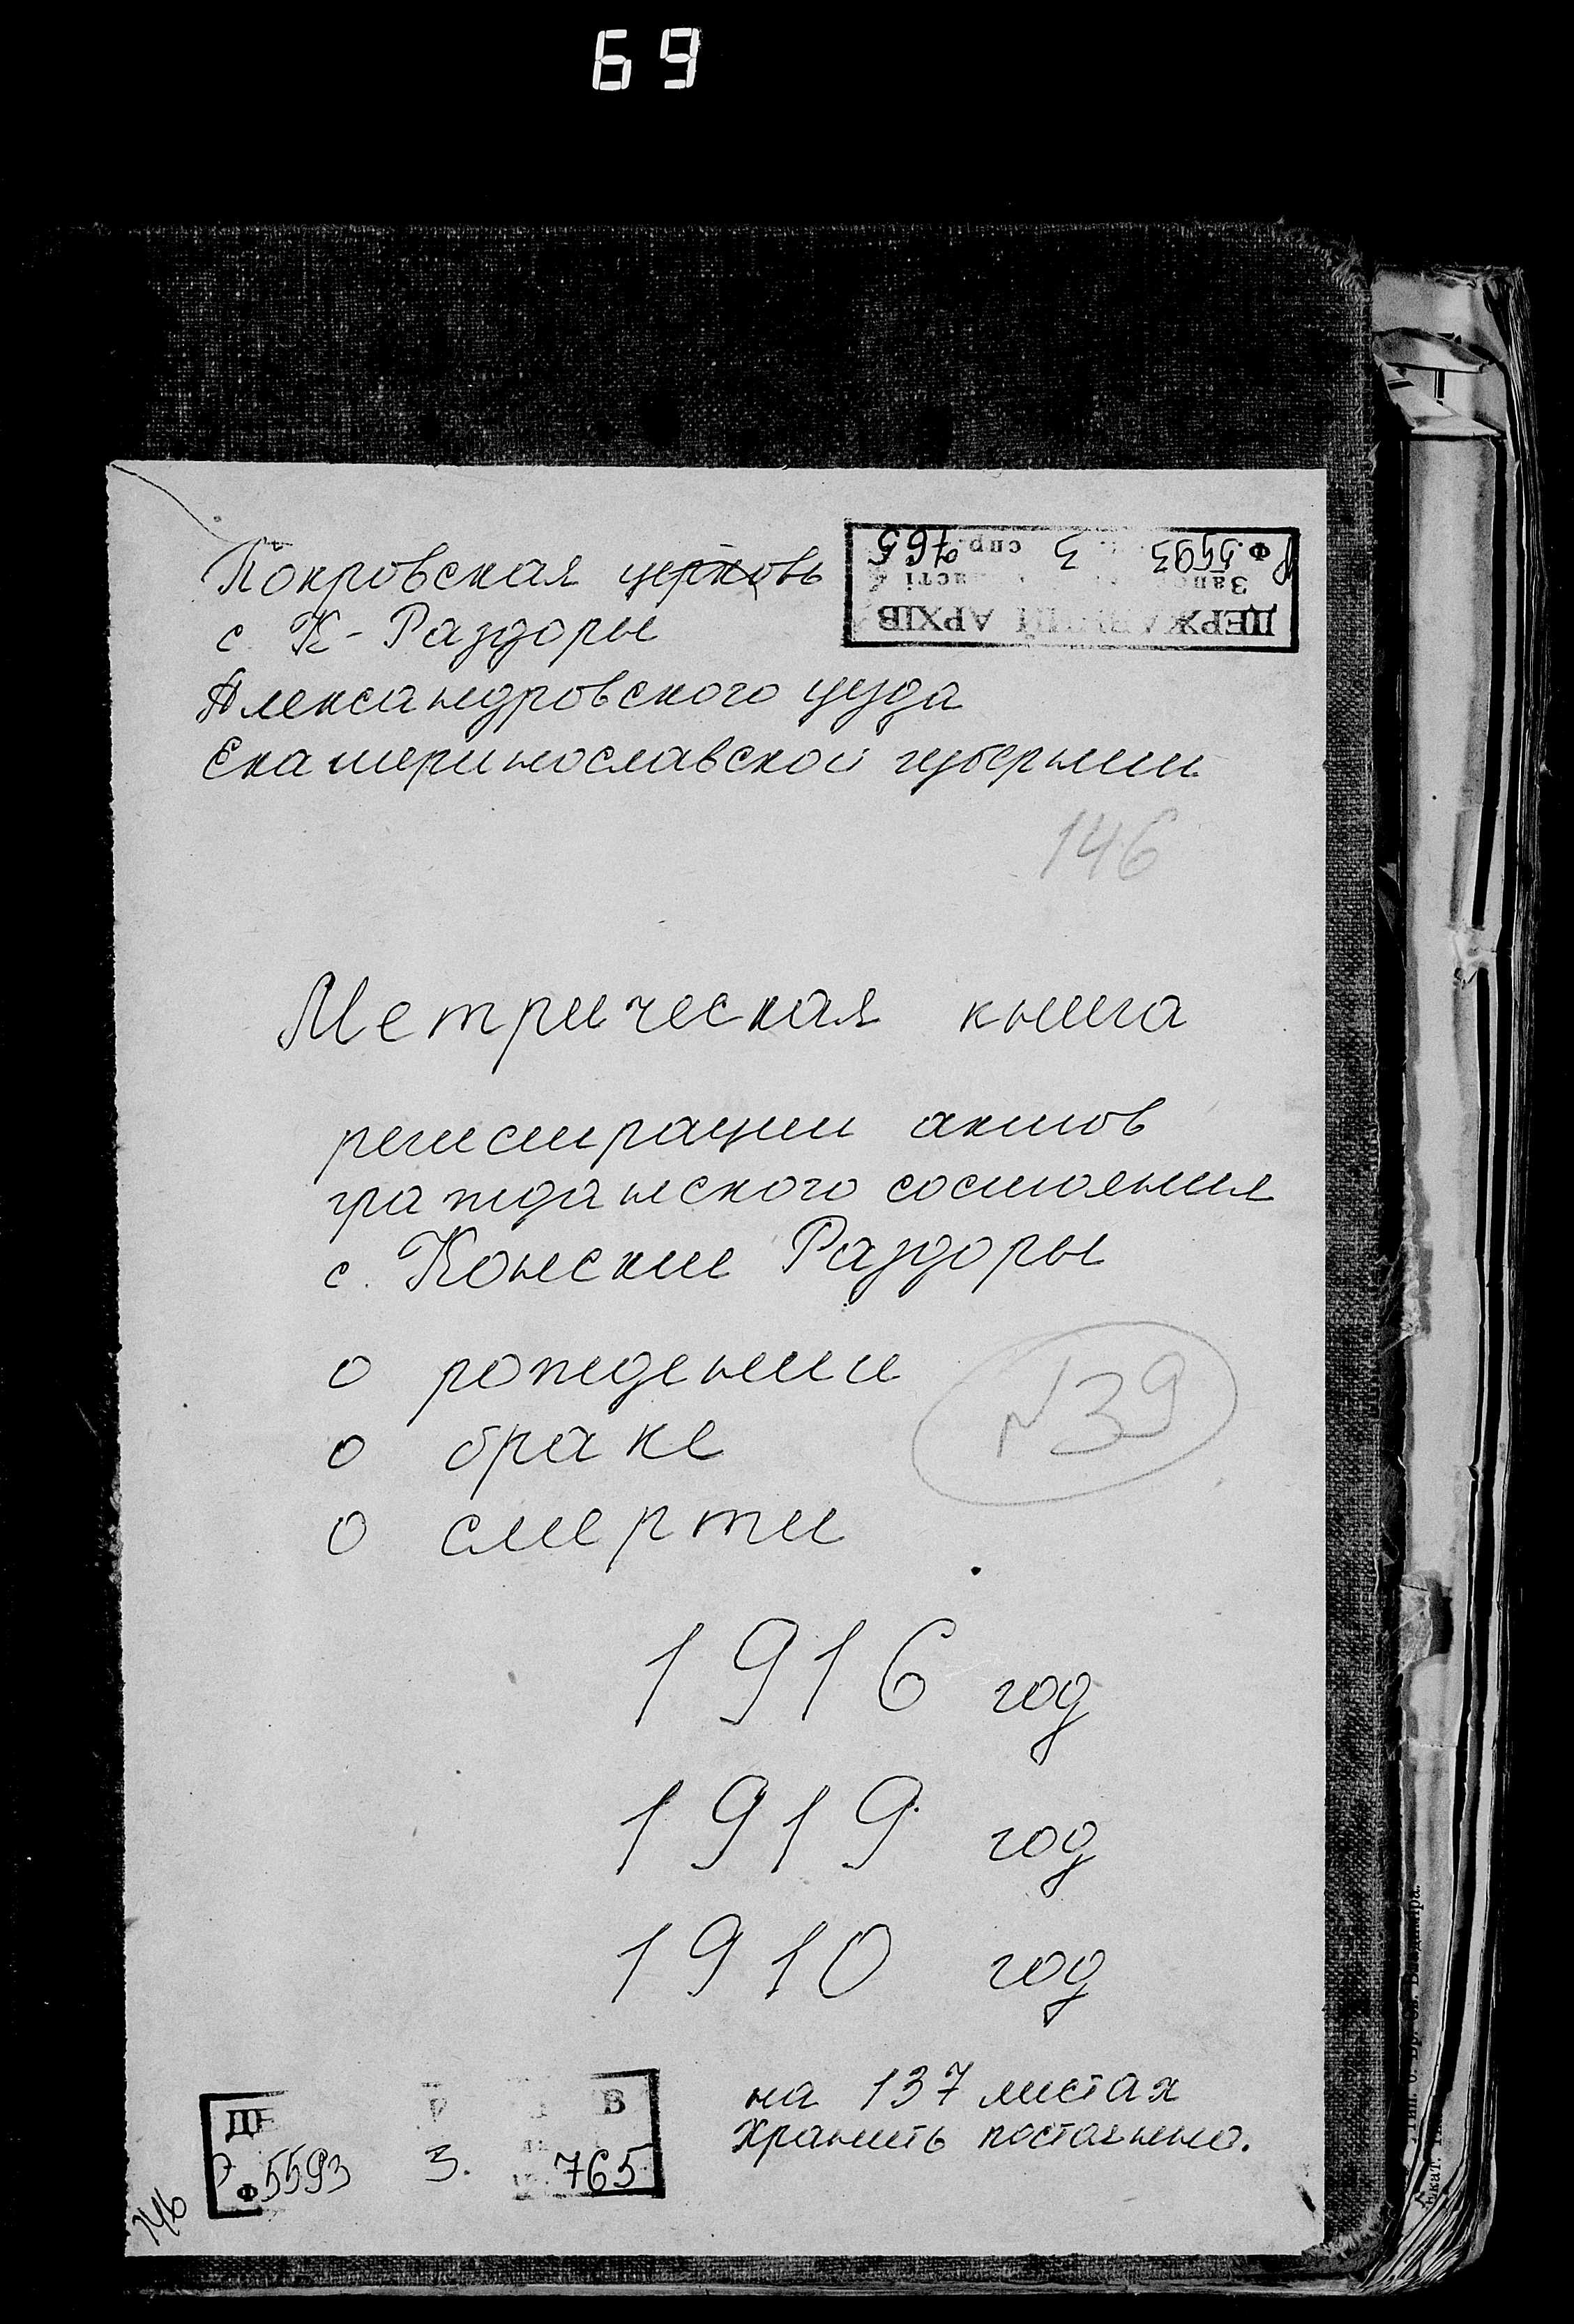 69
Покровская церковь
с. К-Раздоры
Александровского уезда
Екатеринославской губернии
ДЕРЖАВНИЙ АРХІВ
Р Ф. 5593 3 спр. 765
146
Метрическая книга
регистрации актов
гражданского состояния
с. Конские Раздоры
о рождении
о браке
о смерти
N39
1916 год
1919 год
1910 год
на 137 листах
Хранить постоянно.
Ф 5593 3. 765
146